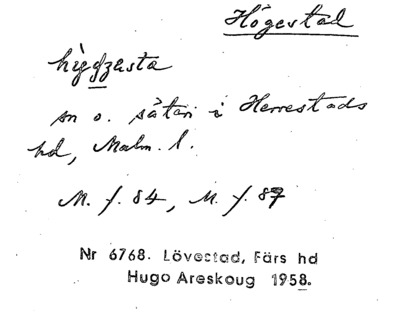 Högestad
hìgdzesta
sn o. säteri i Herrestads
hd, Malm. l.
M. f. 84, M. f. 87
Nr 6768. Lövestad, Färs hd
Hugo Areskoug 1958.